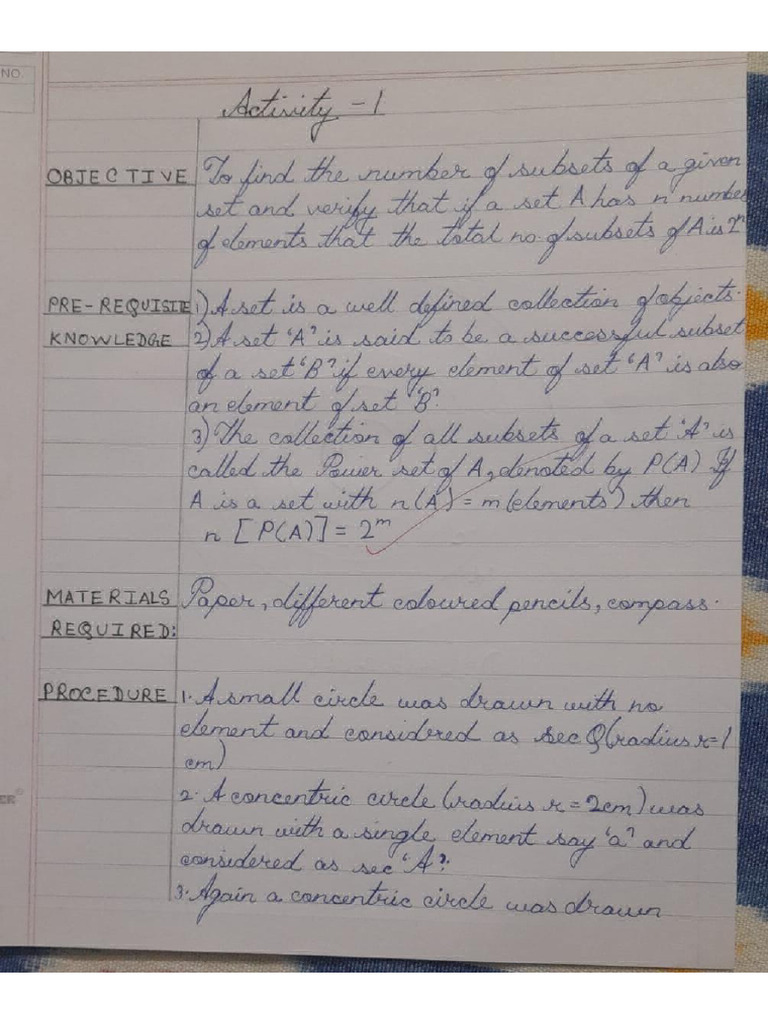 NO.
Activity - 1
OBJECTIVE To find the number of subsets of a given
set and verify that if a set A has n number
of elements that the total no. of subsets of A is 2ⁿ
PRE-REQUISITE 1) A set is a well defined collection of objects.
KNOWLEDGE 2) A set 'A' is said to be a successful subset
of a set 'B' if every element of set 'A' is also
an element of set 'B'.
3) The collection of all subsets of a set 'A' is
called the Power set of A, denoted by P(A) If
A is a set with n(A) = m(elements) then
n [P(A)] = 2ᵐ
MATERIALS Paper, different coloured pencils, compass.
REQUIRED:
PROCEDURE 1. A small circle was drawn with no
element and considered as sec Q(radius r=1
cm)
2. A concentric circle (radius r = 2cm) was
drawn with a single element say 'a' and
considered as sec 'A'.
3. Again a concentric circle was drawn